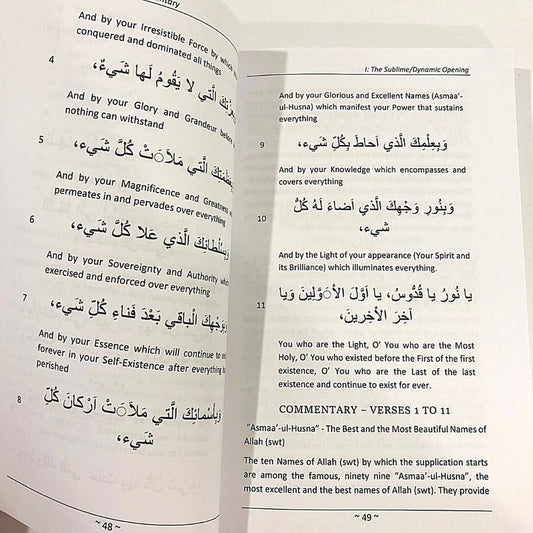 ntary
And by your Irresistible Force by which
conquered and dominated all things
4
الَّتي لا يَقُومُ لَها شَيءٌ،
And by your Glory and Grandeur before
nothing can withstand
5
الَّتي مَلاَتْ كُلَّ شَيء،
And by your Magnificence and Greatness
permeates in and pervades over everything
6
وَبِسُلْطانِكَ الَّذي عَلا كُلَّ شَيء،
And by your Sovereignty and Authority
exercised and enforced over everything
7
وَبِوَجْهِكَ الْباقي بَعْدَ فَناءِ كُلِّ شَيء،
And by your Essence which will continue to
forever in your Self-Existence after everything
perished
8
وَبِأَسْمائِكَ الَّتي مَلاَتْ اَرْكانَ كُلِّ
شَيء،
~ 48 ~
I: The Sublime/Dynamic Opening
And by your Glorious and Excellent Names (Asmaa’-
ul-Husna) which manifest your Power that sustains
everything
9
وَبِعِلْمِكَ الَّذي اَحاطَ بِكُلِّ شَيء،
And by your Knowledge which encompasses and
covers everything
10
وَبِنُورِ وَجْهِكَ الَّذي اَضاءَ لَهُ كُلُّ
شيء،
And by the Light of your appearance (Your Spirit and
its Brilliance) which illuminates everything.
11
يا نُورُ يا قُدُّوسُ، يا اَوَّلَ الاَوَّلِينَ وَيا
آخِرَ الآخِرينَ،
You who are the Light, O’ You who are the Most
Holy, O’ You who existed before the First of the first
existence, O’ You who are the Last of the last
existence and continue to exist for ever.
COMMENTARY – VERSES 1 TO 11
“Asmaa’-ul-Husna” - The Best and the Most Beautiful Names of
Allah (swt)
The ten Names of Allah (swt) by which the supplication starts
are among the famous, ninety nine “Asmaa’-ul-Husna”, the
most excellent and the best names of Allah (swt). They provide
~ 49 ~